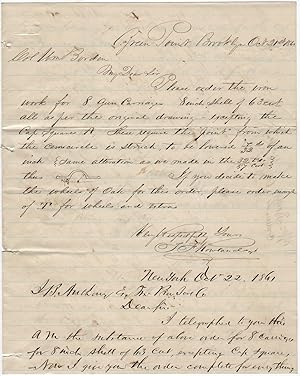 Green Point Brooklyn Oct 21st 186
Col Wm Borden
My Dear Sir
Please order the iron
work for 8 Gun Carriages 8 inch shell of 63 cwt
all as per the original drawing - excepting the
Cap Square A. These require the point from which
the is struck to be lowered of an
inch (same alteration as we made in the
thus If you decide to make
the wheels of Oak for this order, please order
of for wheels and
Very Respectfully Yours
T. F. Rowland
New York Oct 22. 1861
J B Anthony Esq
Dear Sir
I telegraphed to you this
A M the substance of above order for 8 Carriages
for 8 inch shell of 63 cwt excepting Cap Square,
Now I give you the order complete for everything